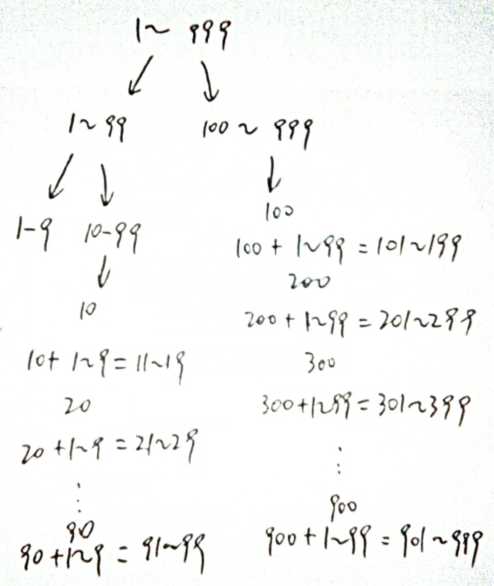 1~ 999
1~99
100 ~ 999
1-9 10-99
10
10+ 1~9=11~19
20
20+1~9=21~29
⋮
90
90+1~9=91~99
100
100+ 1~99=101~199
200
200+1~99=201~299
300
300+1~99=301~399
⋮
900
900+1~99=901~999